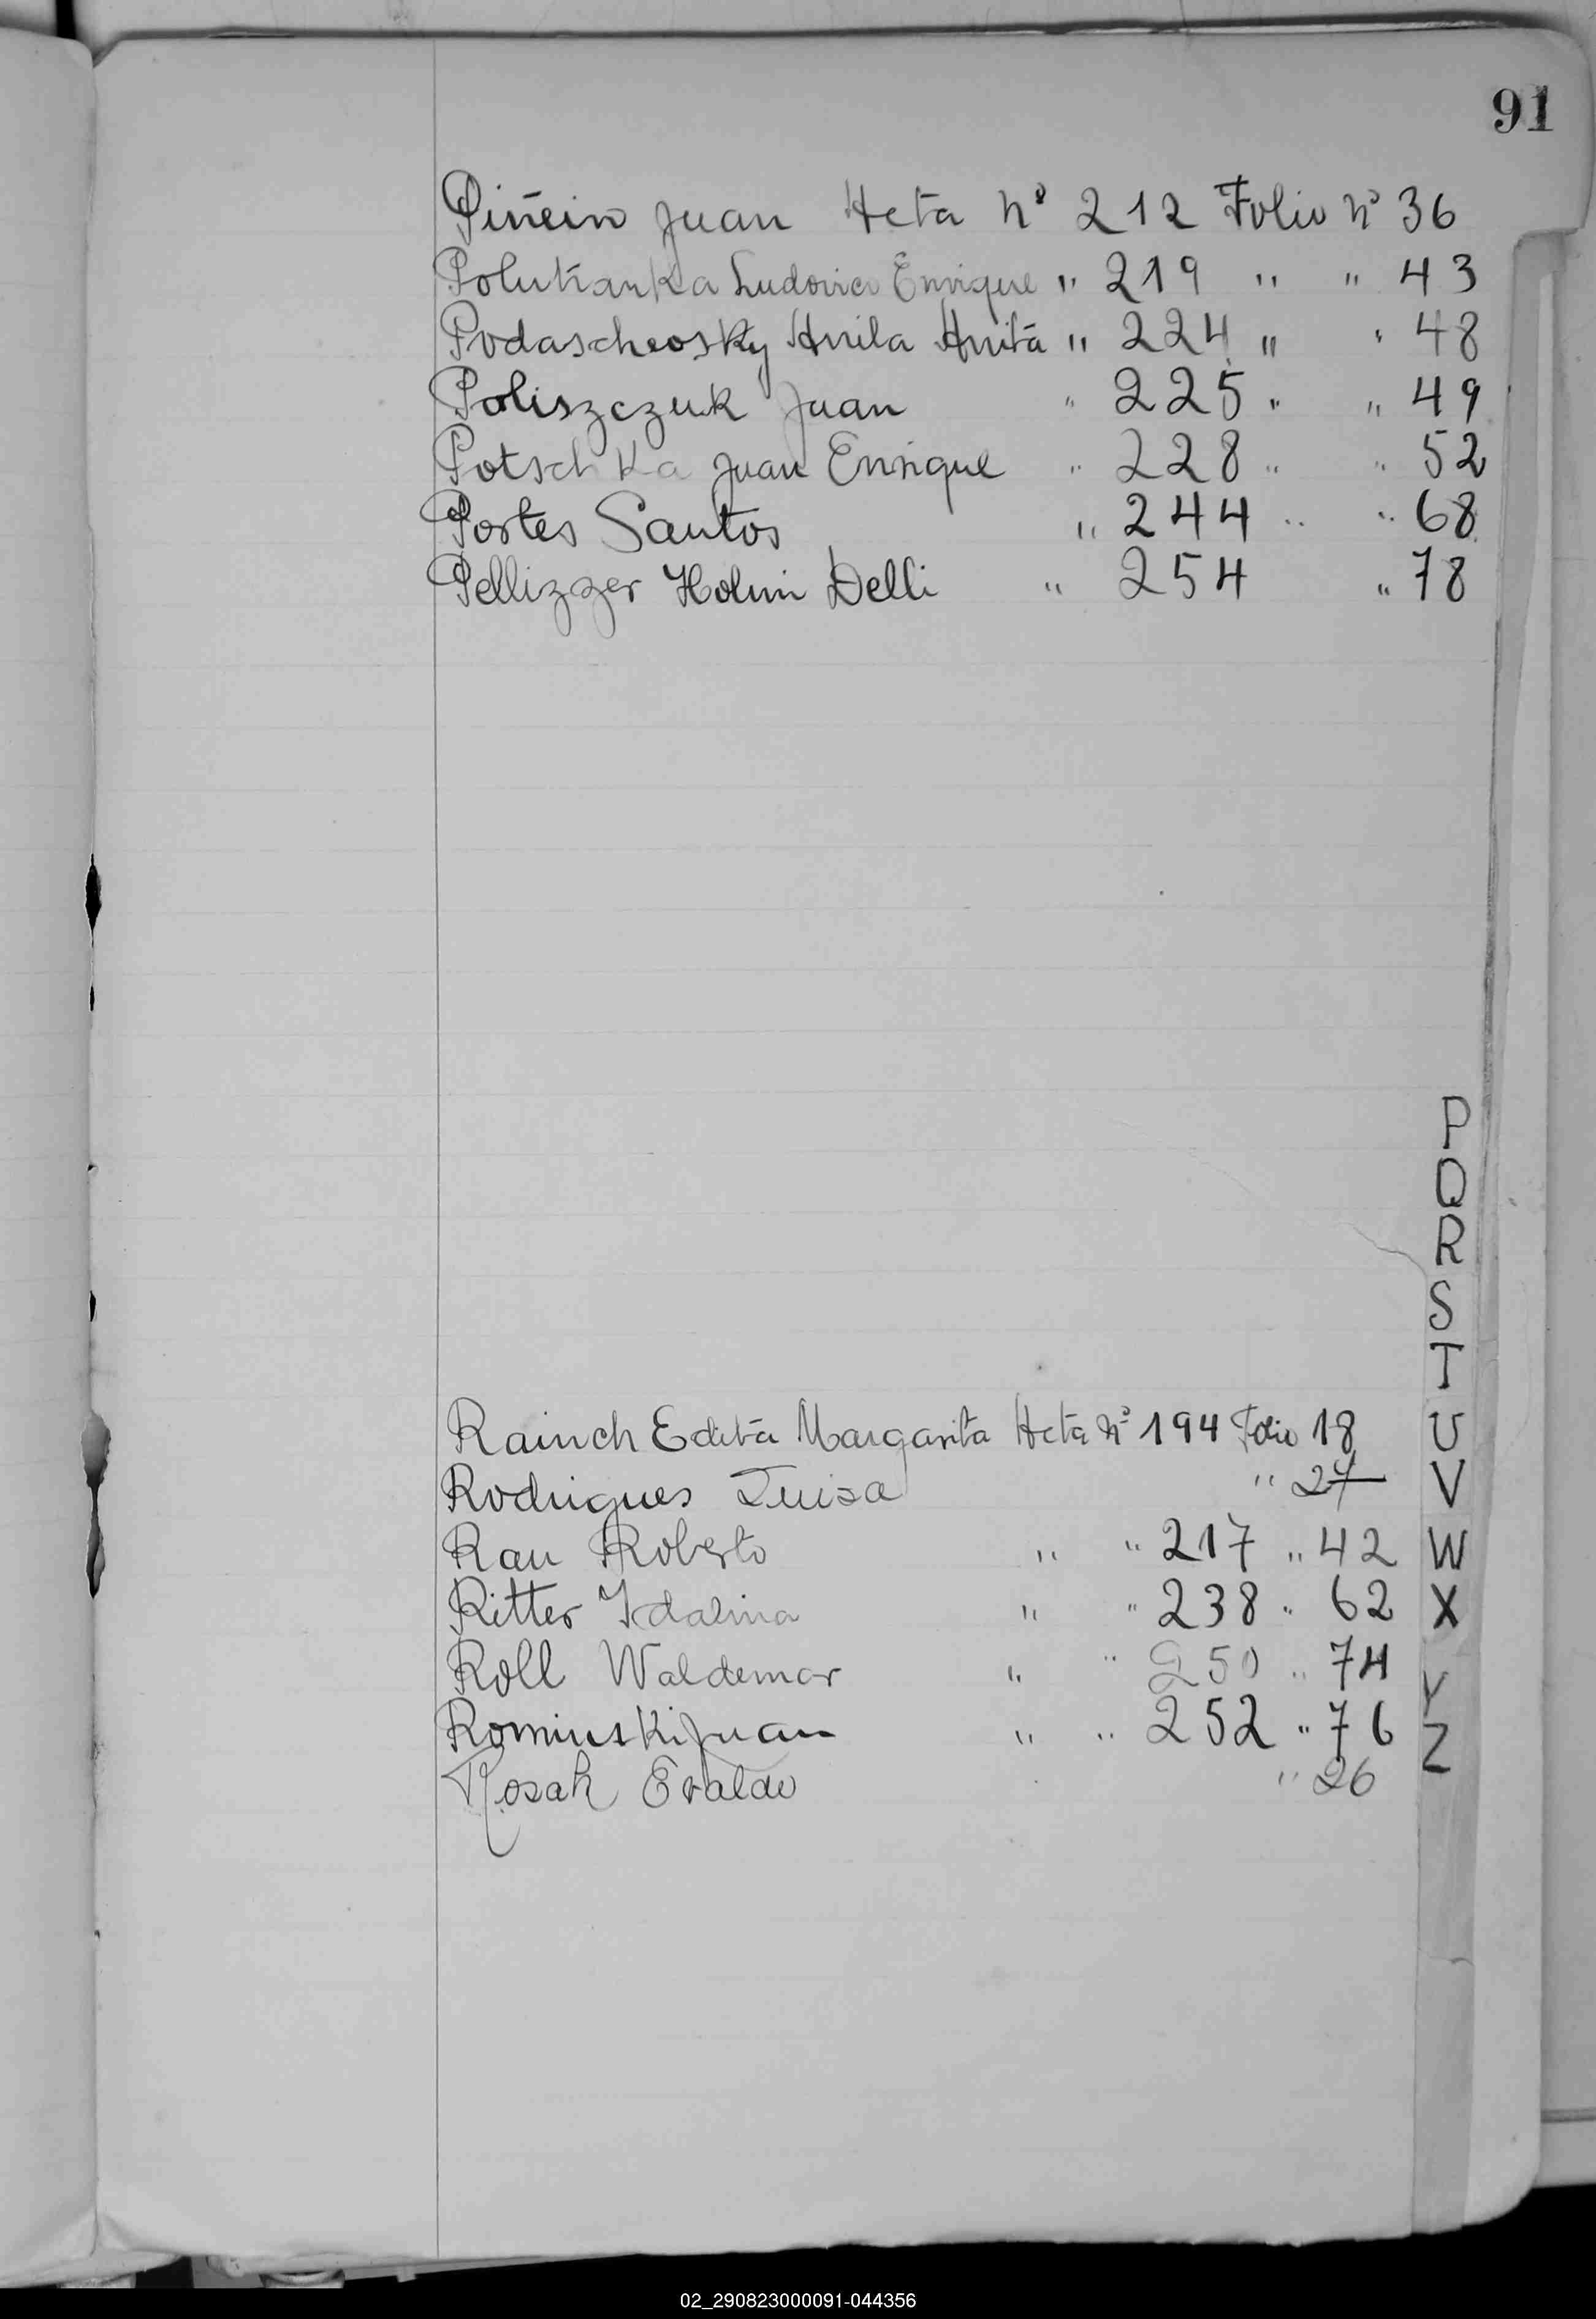 91
Piñeiro Juan Acta Nº 212 Folio Nº 36
Poluhanka Ludovico Enrique " 219 " " 43
Podascheosky Anila Anita " 224 " " 48
Poliszczuk Juan " 225 " " 49
Potschka Juan Enrique " 228 " " 52
Portes Santos " 244 " " 68
Pellizzer Holmi Delli " 254 " 78
P
Q
R
S
T
Rainch Edita Margarita Acta Nº 194 Folio 18 U
Rodrigues Luisa " 27 V
Rau Roberto " " 217 " 42 W
Ritter Idalina " " 238 " 62 X
Roll Waldemar " " 250 " 74 Y
Rominski Juan " " 252 " 76 Z
Rosak Evaldo " 26
02_290823000091-044356